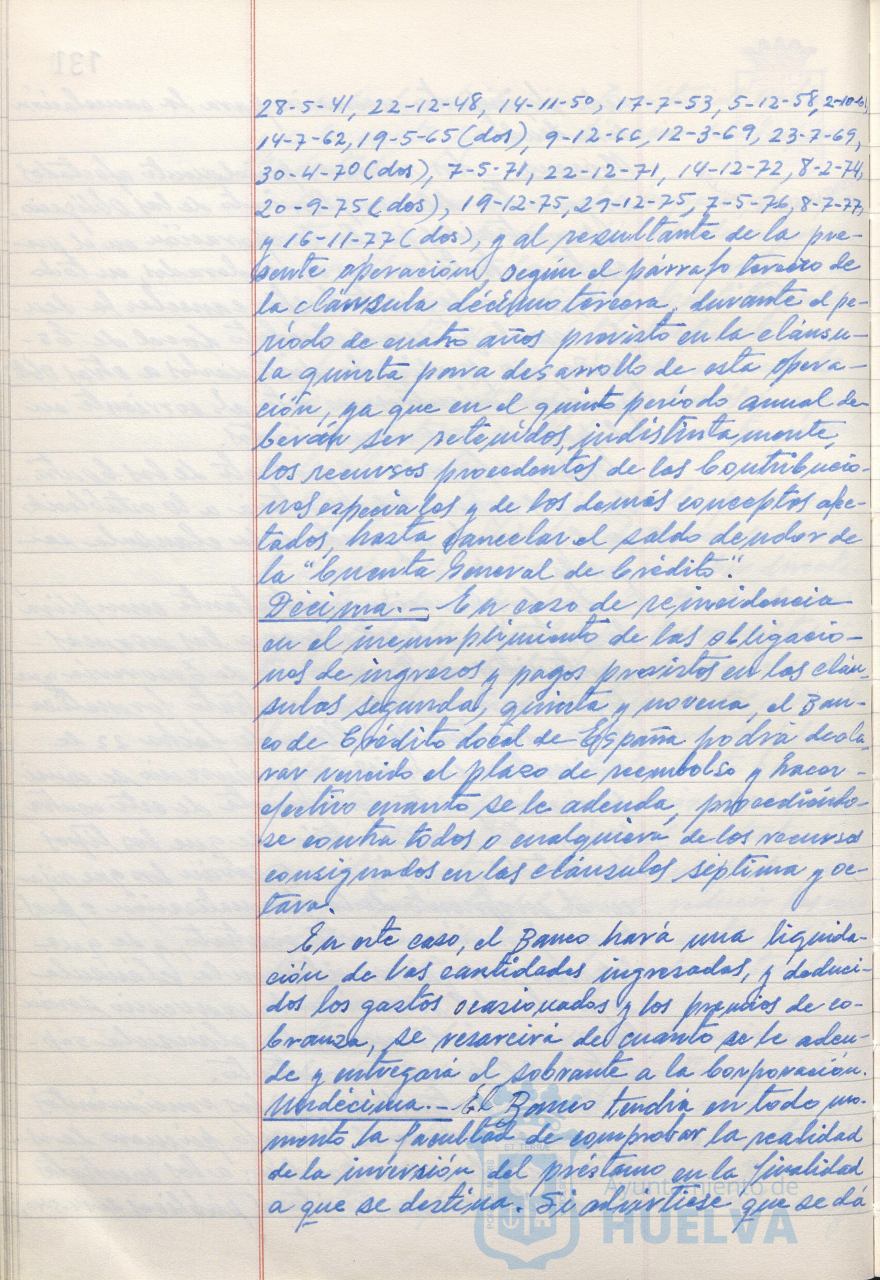 28-5-41, 22-12-48, 14-11-50, 17-7-53, 5-12-58, 2-10-61,
14-7-62, 19-5-65 (dos), 9-12-66, 12-3-69, 23-7-69,
30-4-70 (dos), 7-5-71, 22-12-71, 14-12-72, 8-2-74,
20-9-75 (dos), 19-12-75, 29-12-75, 7-5-76, 8-7-77,
y 16-11-77 (dos), y al resultante de la pre-
sente operación, según el párrafo tercero de
la cláusula décimo tercera, durante el pe-
ríodo de cuatro años previsto en la cláusu-
la quinta para desarrollo de esta opera-
ción, ya que en el quinto período anual de-
berán ser retenidos, indistintamente,
los recursos procedentes de las Contribucio-
nes especiales y de los demás conceptos afec-
tados, hasta cancelar el saldo deudor de
la "Cuenta General de Crédito".
Décima.- En caso de reincidencia
en el incumplimiento de las obligacio-
nes de ingresos y pagos previstos en las cláu-
sulas segunda, quinta y novena, el Ban-
co de Crédito Local de España podrá decla-
rar vencido el plazo de reembolso y hacer
efectivo cuanto se le adeuda, procediéndo-
se contra todos o cualquiera de los recursos
consignados en las cláusulas séptima y oc-
tava.
En este caso, el Banco hará una liquida-
ción de las cantidades ingresadas, y deduci-
dos los gastos ocasionados y los premios de co-
branza, se resarcirá de cuanto se le adeu-
de y entregará el sobrante a la Corporación.
Undécima.- El Banco tendrá en todo mo-
mento la facultad de comprobar la realidad
de la inversión del préstamo en la finalidad
a que se destina. Si advirtiese que se dá
Ayuntamiento de
HUELVA